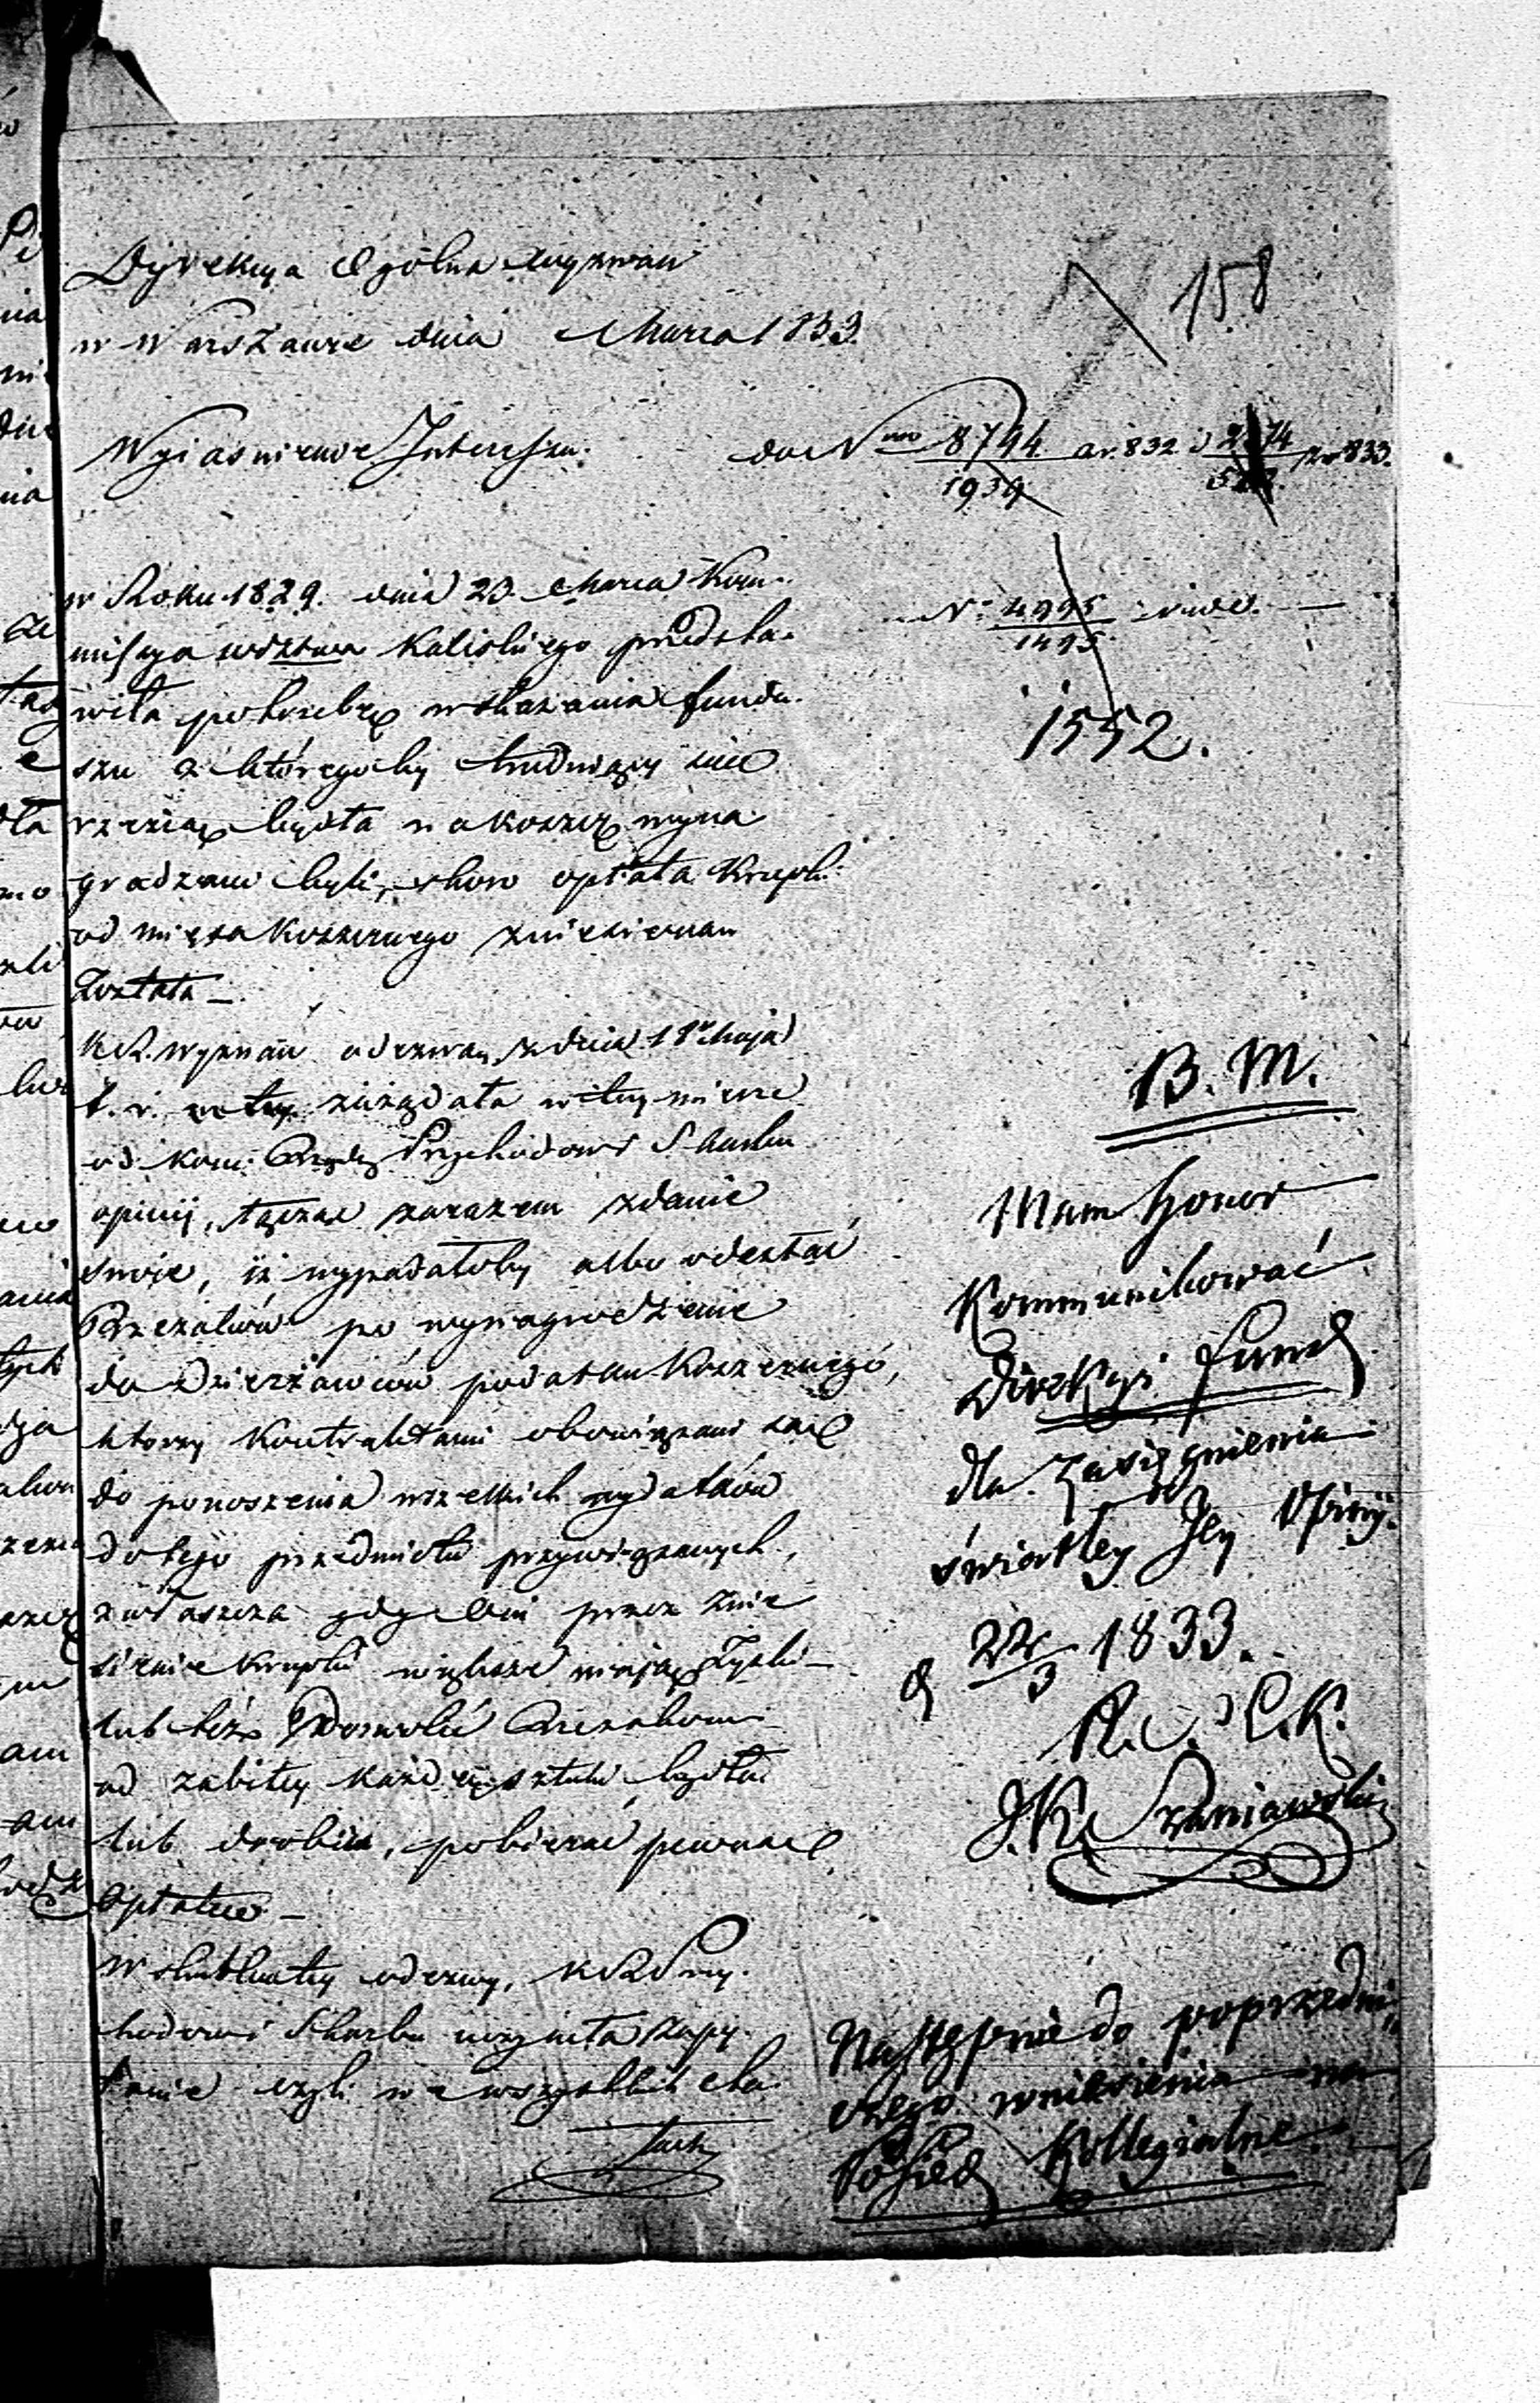 158
Dyrekcya Ogólna Wyznań
w Warszawie dnia Marca 1833.
Wyiaśnienie Interessu.
do Nro 8794/1939 ar. 832 i /833.
w Roku 1829. dnia 23. Marca Kom-
missya wdztwa Kaliskiego przedsta-
wiła potrzebę wskazania fundu-
szu z któregoby trudniący się
rzezią bydła na koszer, wyna-
gradzani byli, skoro opłata Krupki
od mięsa koszernego zniesioną
Została —
K.R. wyznań odezwą z dnia 18 Maja
t. r. zażądała w tey mierze
od Kom. Rządz. Przychodów i Skarbu
opinij, łącząc zarazem zdanie
swoje, iż wypadałoby albo odesłać
Rzezaków po wynagrodzenie
do Dzierżawców podatku Koszernego,
ktorzy Kontraktami obowiązani są
do ponoszenia wszelkich wydatków
do tego przedmiotu przywiązanych,
zwłaszcza gdy Oni przez znie-
sienie Krupki większe mają Zyski —
lub też Dozwolić Rzezakom
od zabitey każdey sztuki bydła
lub drobiu, pobierać pewną
Opłatę —
W skutku tey odezwy, K.R. Przy-
chodów i Skarbu uczyniła zapy-
tanie czyli we wszystkich Mia-
stach
No 4995/1495
1552.
B. M.
Mam honor
Kommunikować
Direkcyi Fund
dla Zasięgnienia
światłey Jey Opinij.
d 22/3 1833.
R. S. C. K.
J. K. Szaniawski
Następnie do poprzedni-
czego wniesienia na
Posied Kollegialne.